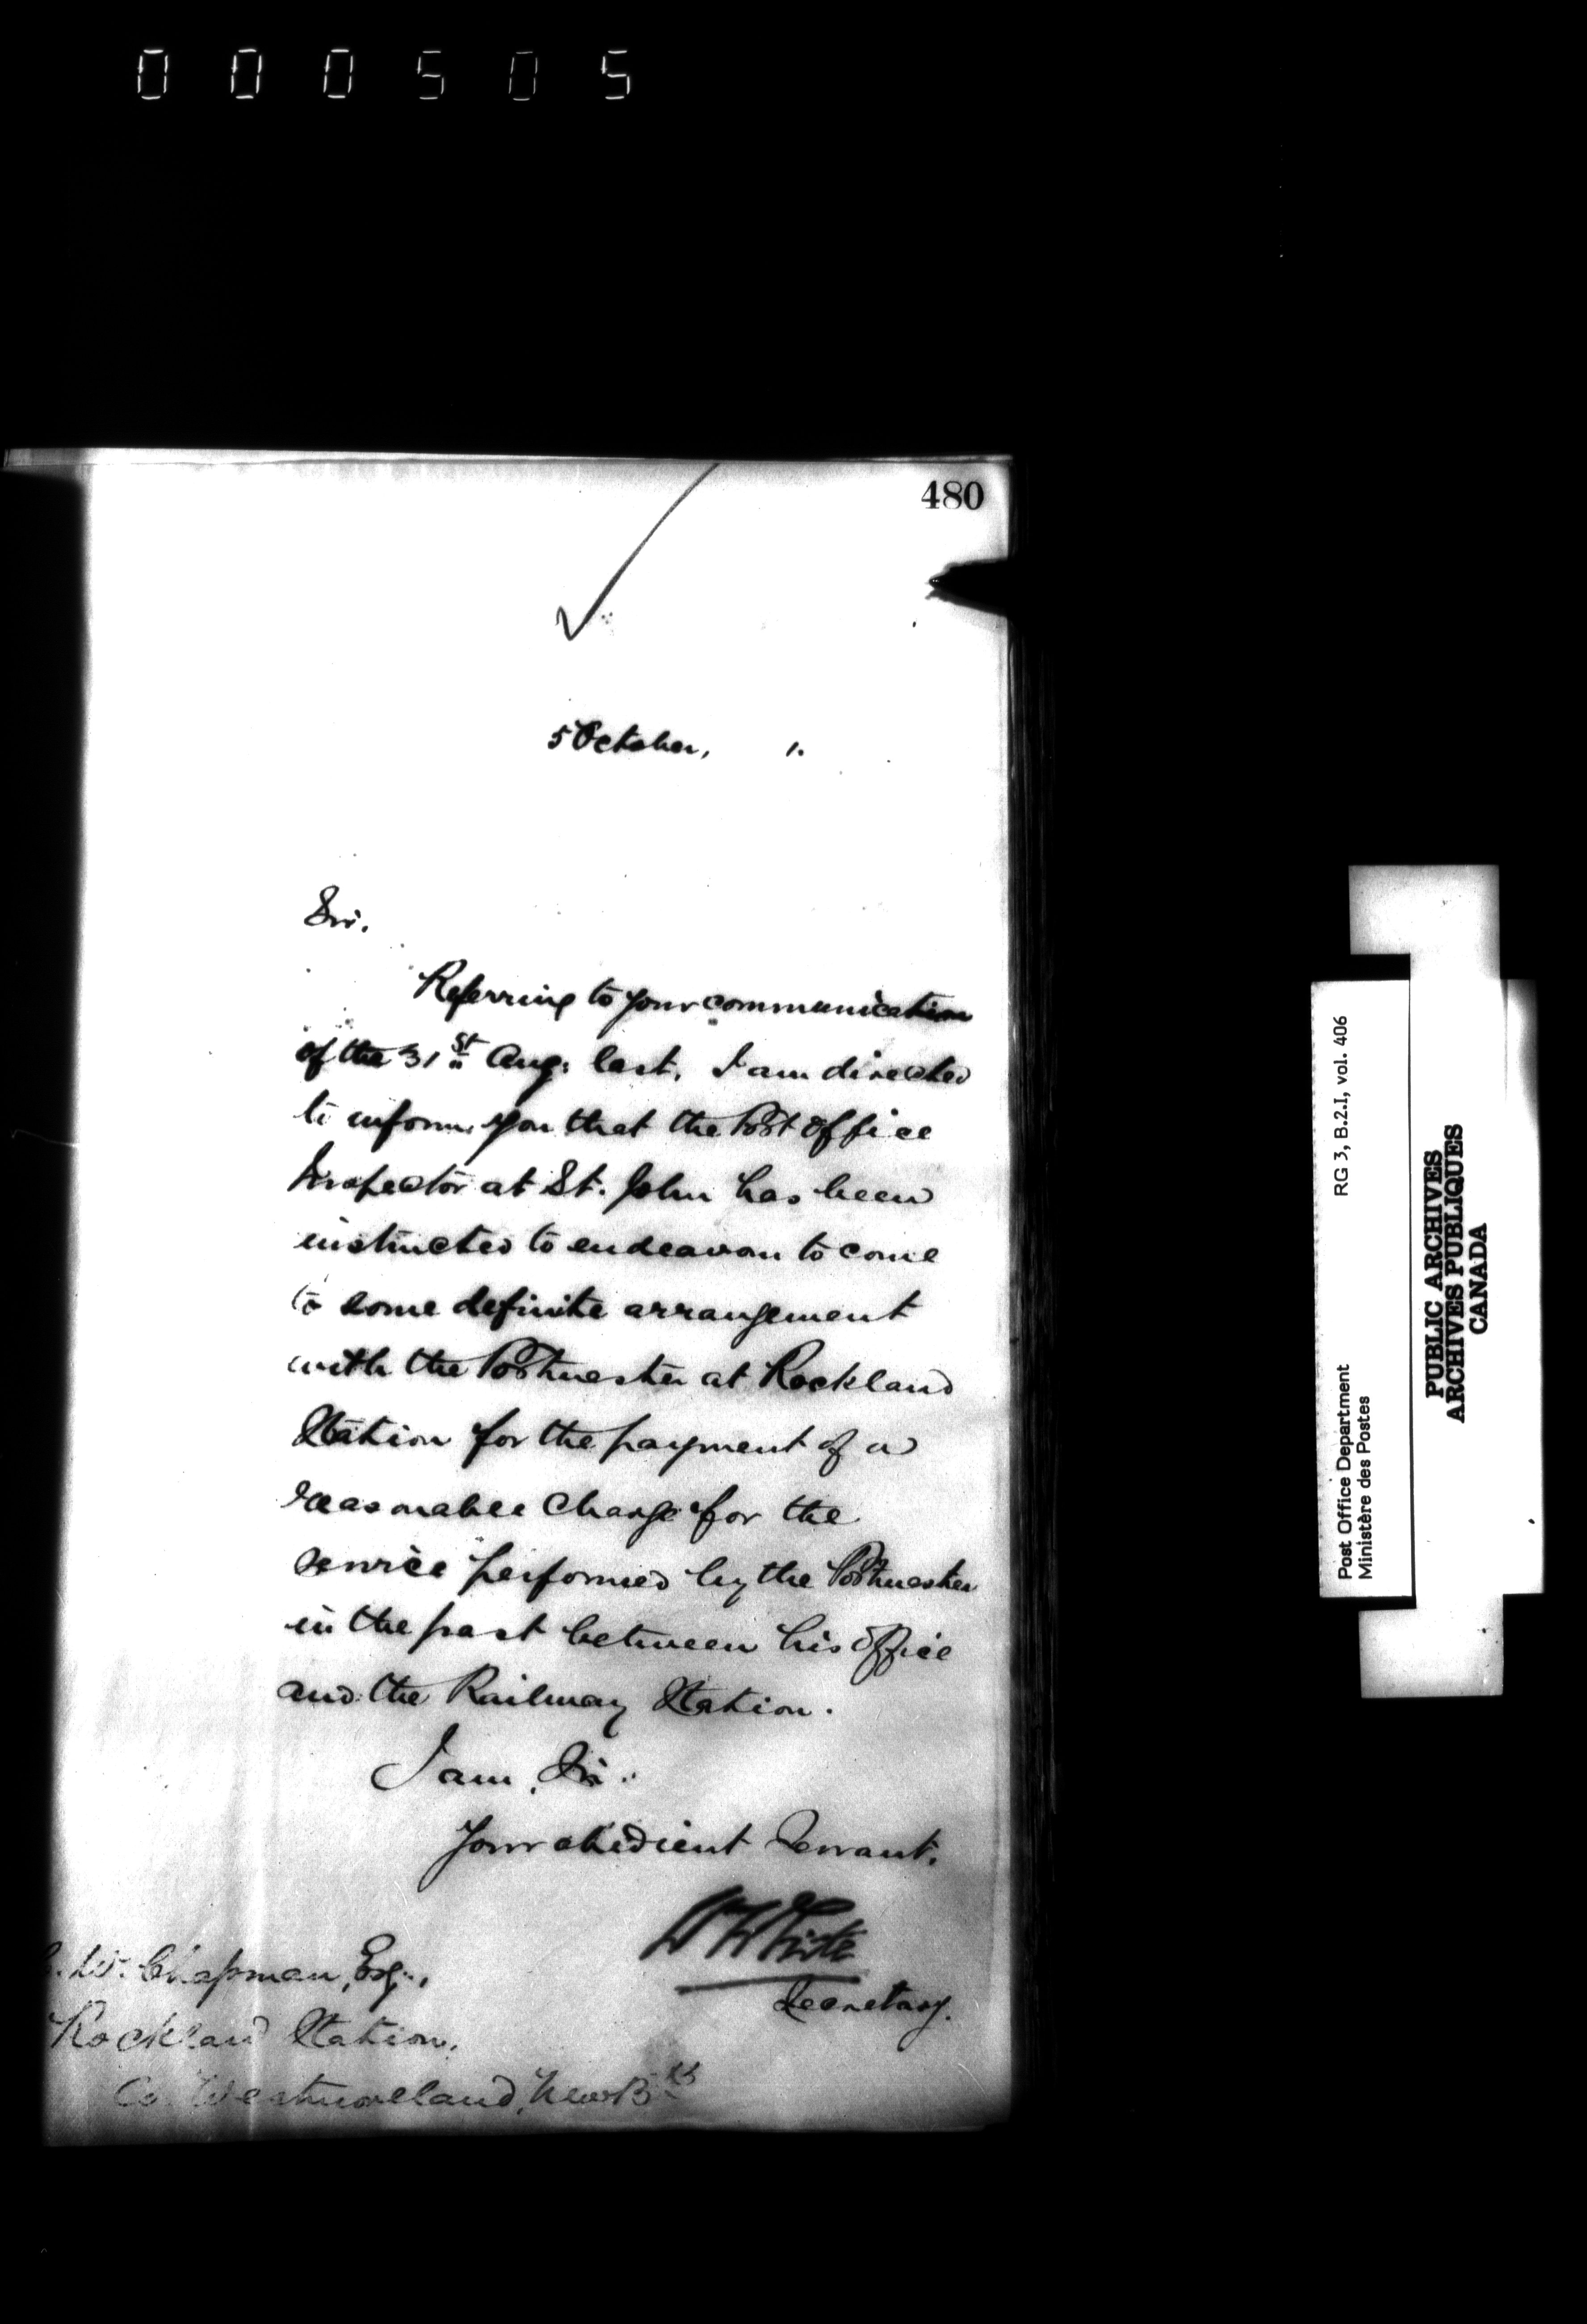 000505
480
5 October, 1.
Sir.
Referring to your communication
of the 31st Aug: last, I am directed
to inform you that the Post Office
Inspector at St. John has been
instructed to endeavour to come
to some definite arrangement
with the Postmaster at Rockland
Station for the payment of a
reasonable charge for the
service performed by the Postmaster
in the past between his office
and the Railway Station.
I am, Sir.
Your obedient Servant.
W White
Secretary.
W. Chapman, Esq.,
Rockland Station,
Co. Westmoreland, New Bk
RG 3, B.2.I, vol. 406
Post Office Department
Ministère des Postes
PUBLIC ARCHIVES
ARCHIVES PUBLIQUES
CANADA